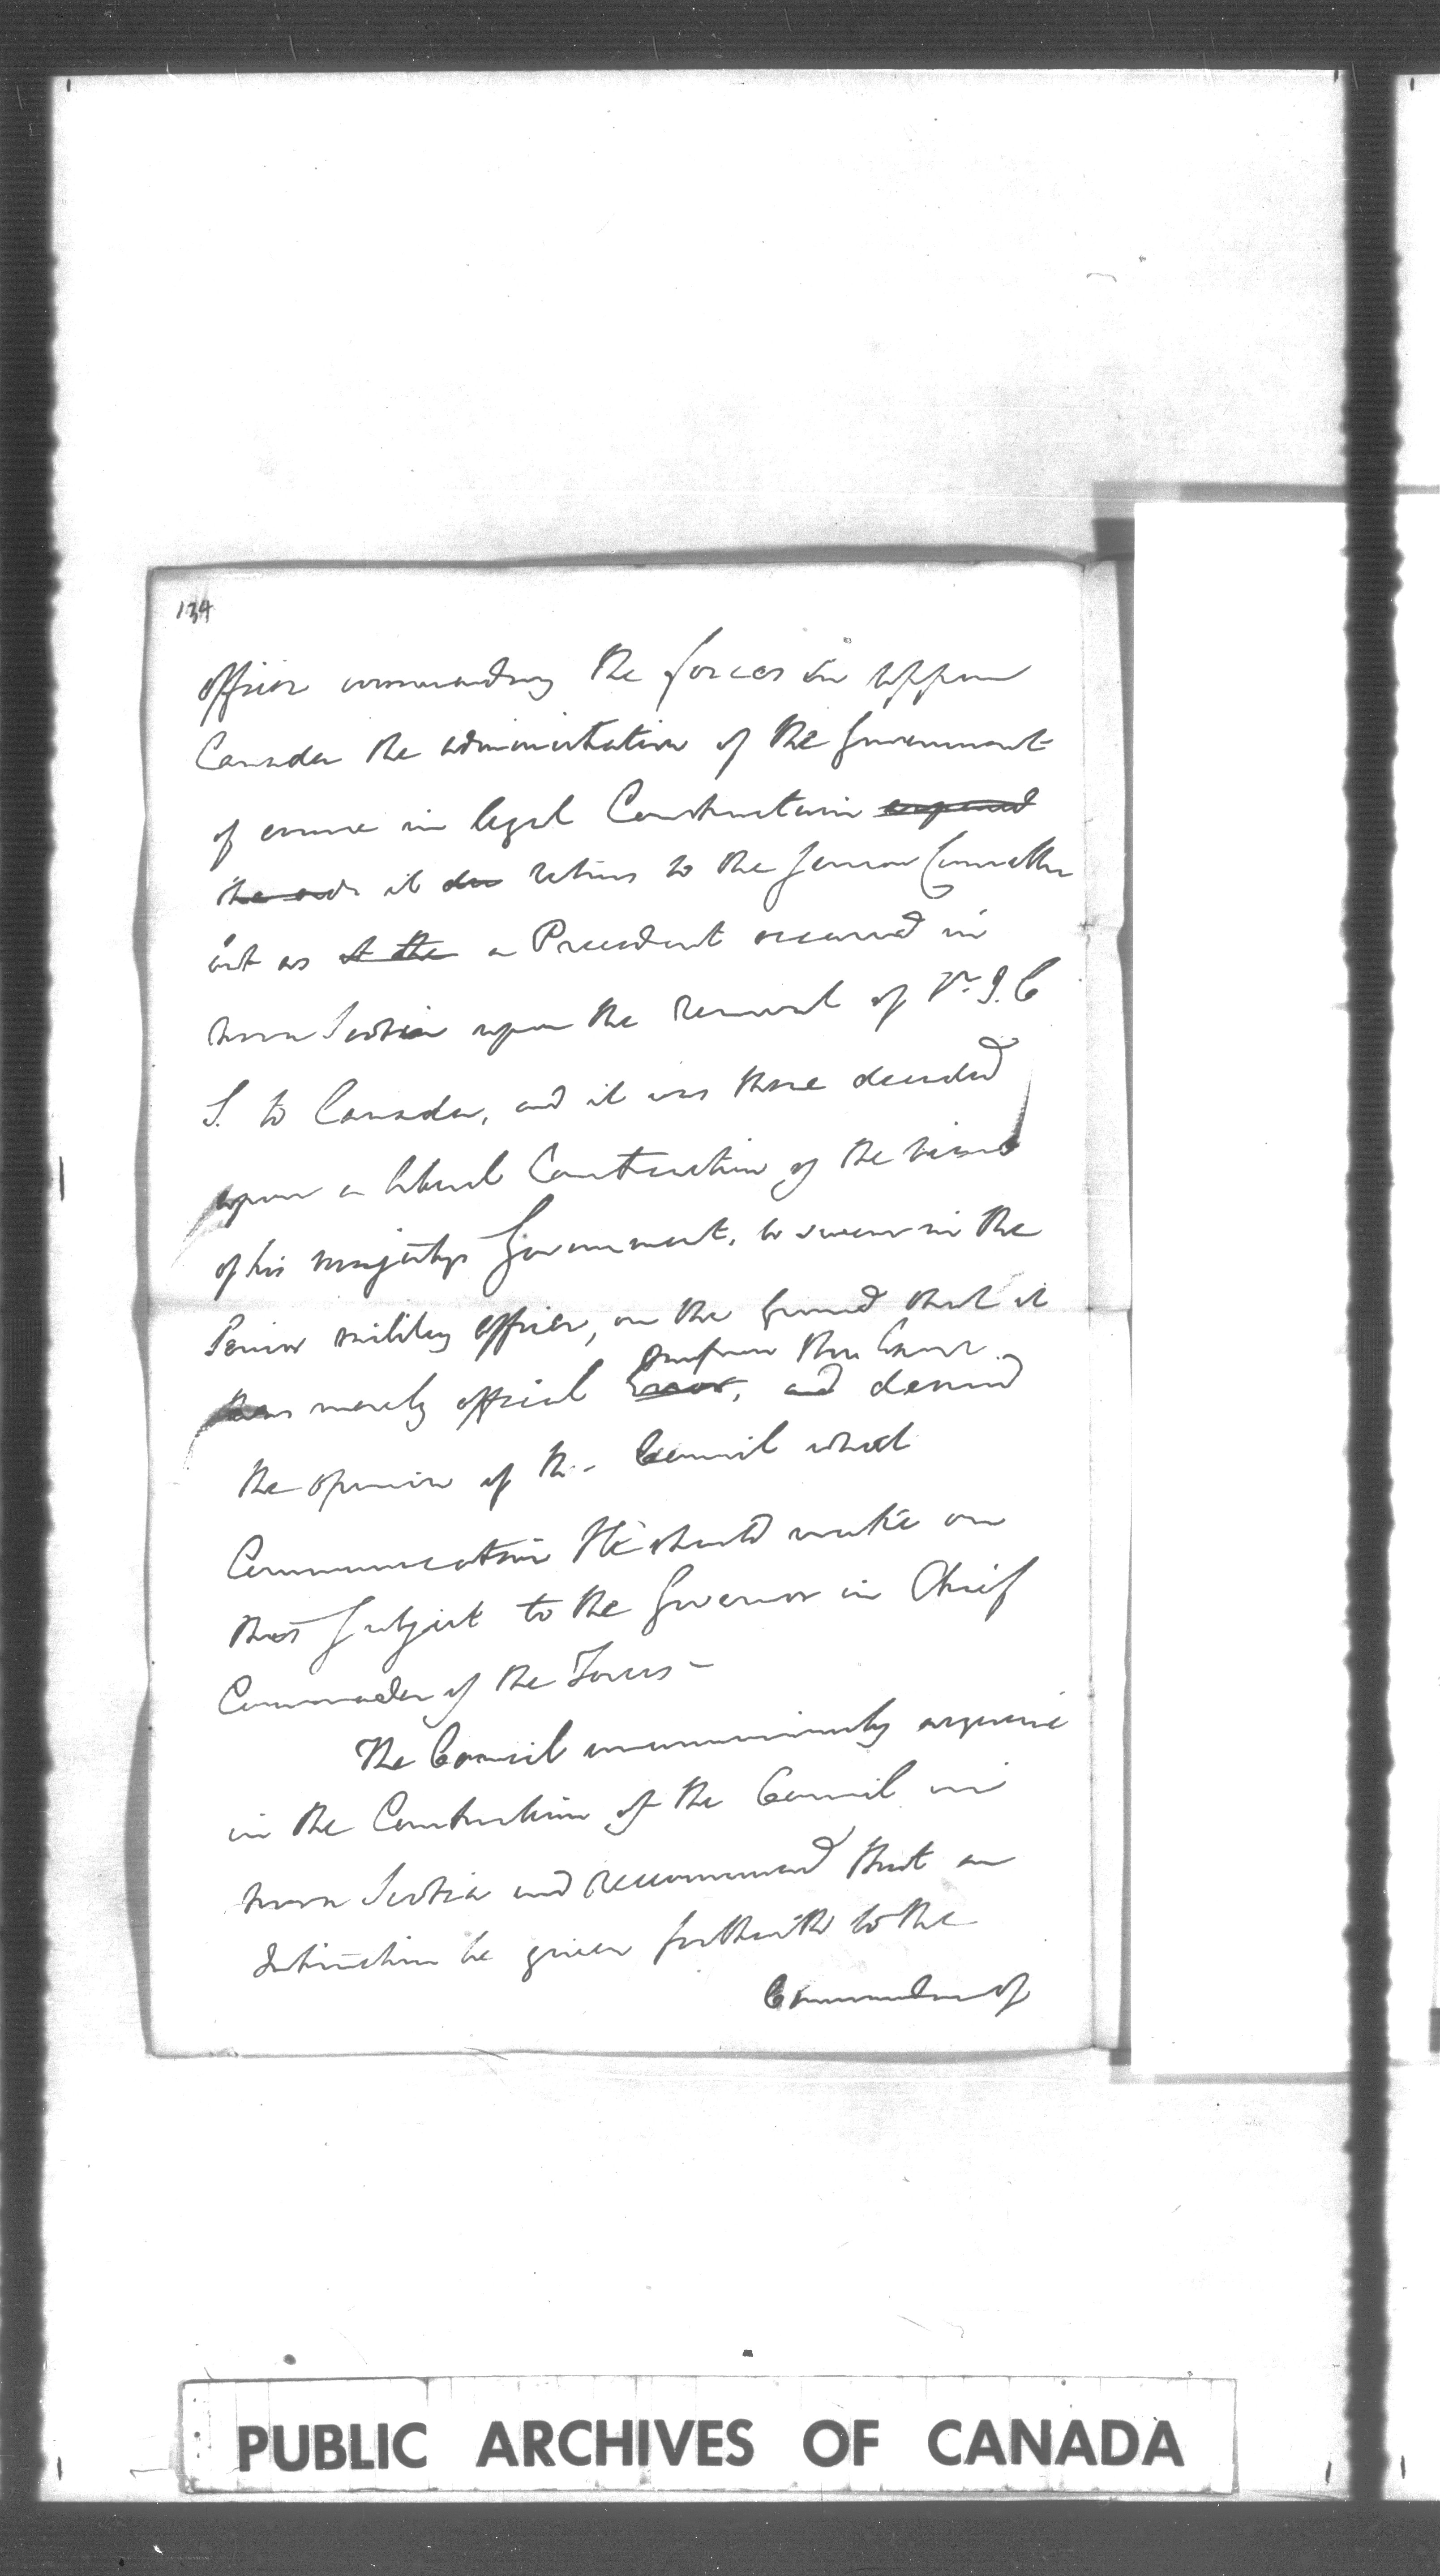 134
officer commanding the forces in upper
Canada the administration of the Government
of course in legal Construction
the it retires to the Senior Councellor
but as it the a President occurred in
nova Scotia upon the removal of Sr. J. C
S. to Canada, and it was there decided
upon a liberal Construction of the views
of his majestys Government, to swear in the
Senior military officer, on the Ground that it
was merely official Error, and desired
the opinion of the Council what
Communication He should make on
this Subject to the Governor in Chief
Commander of the Forces -
The Council unanimously acquiesce
in the Construction of the Council in
nova Scotia and recommend that an
Intimation be given forthwith to the
Commander of
PUBLIC ARCHIVES OF CANADA